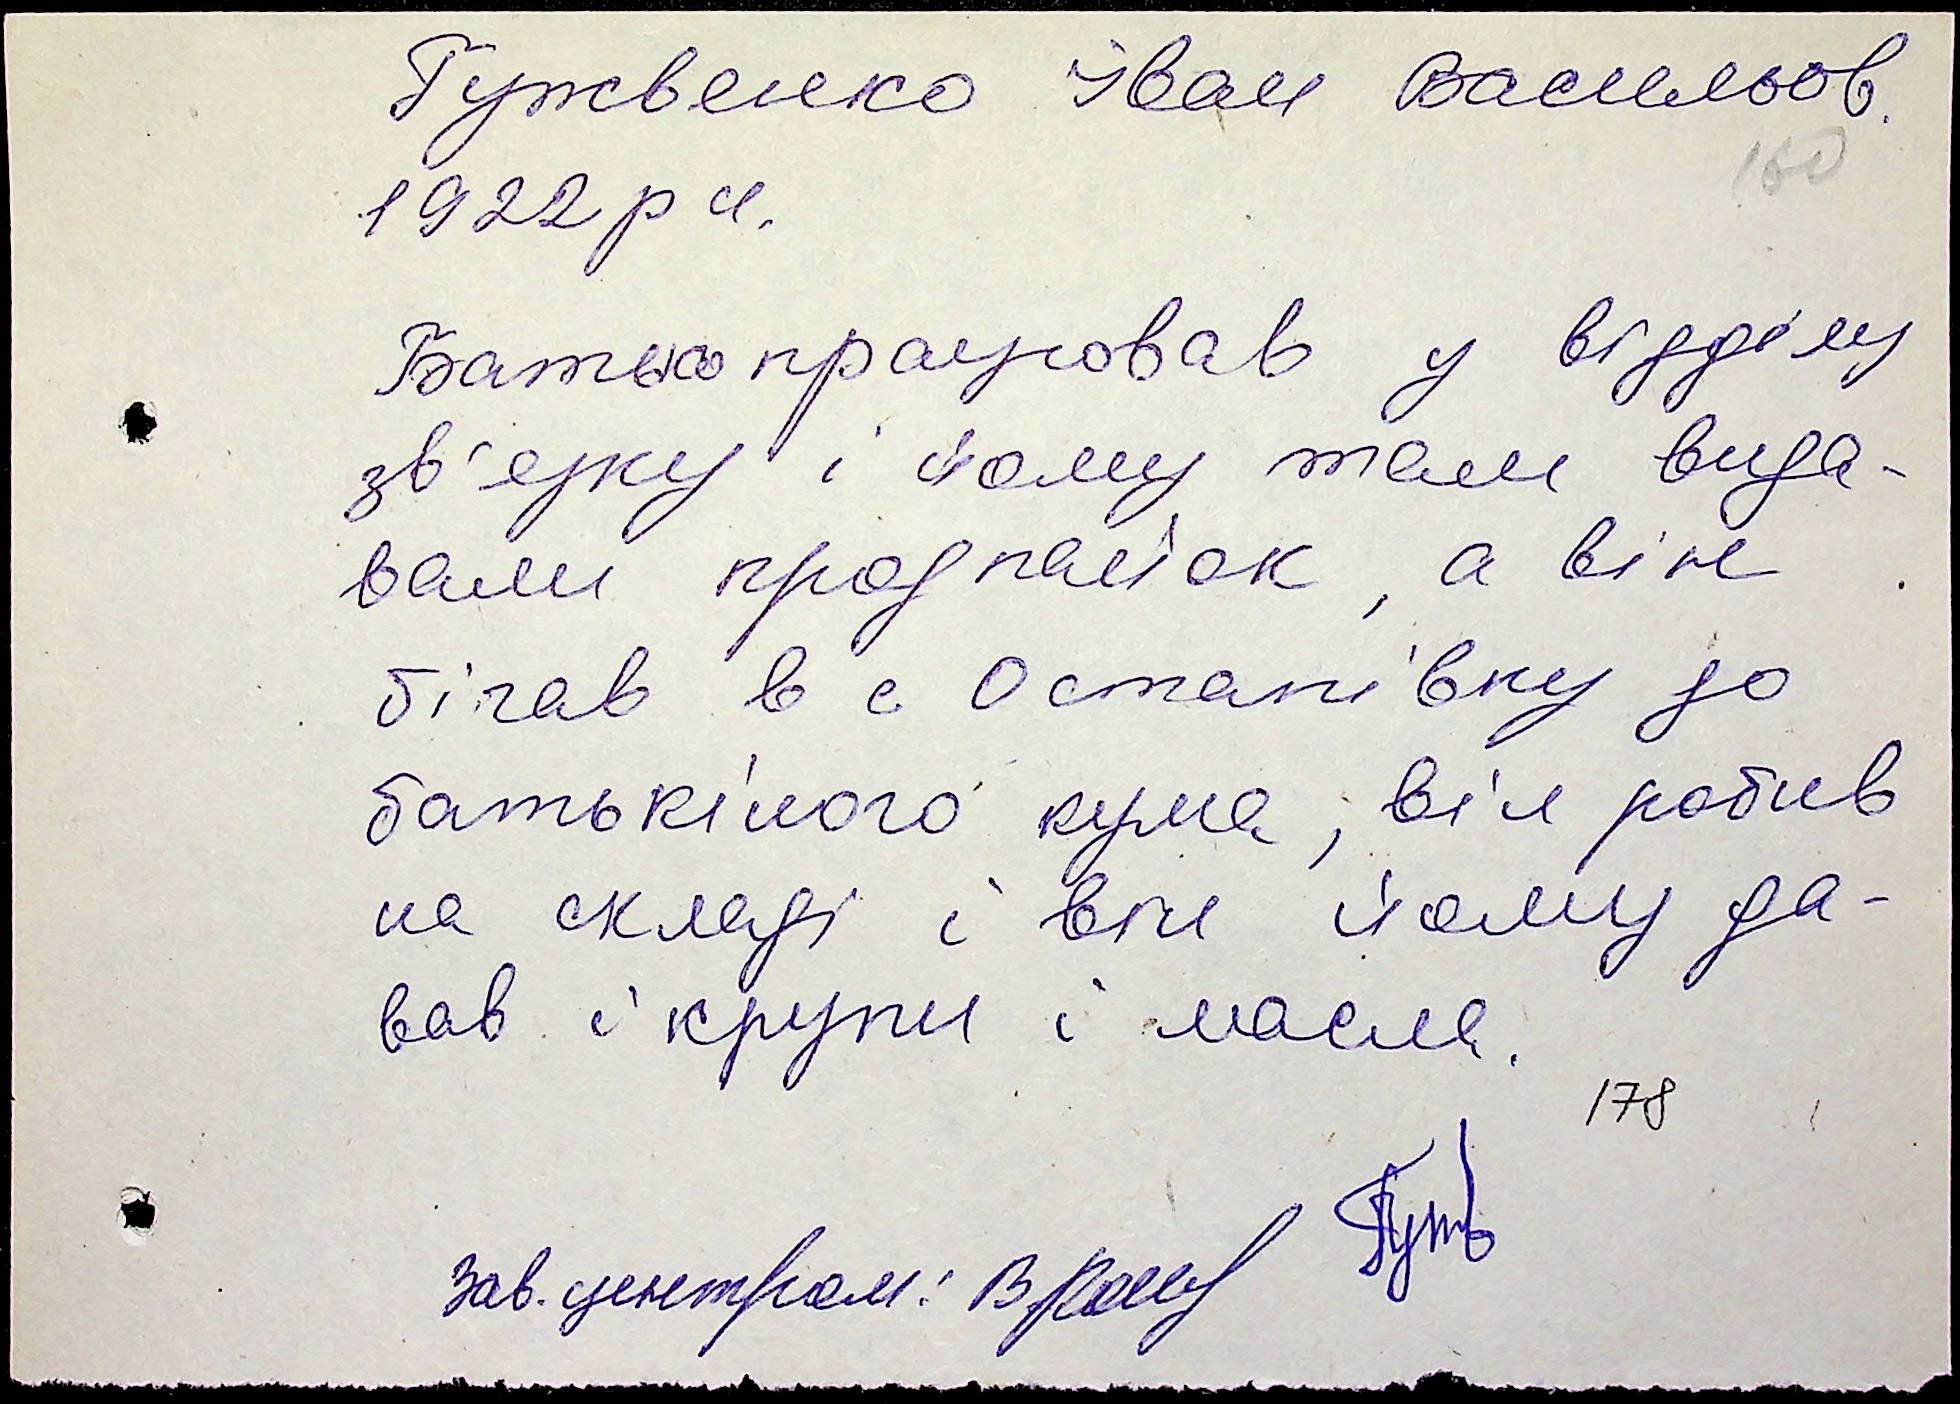 Гужвенко Іван Васильов.
160
1922 р н.
Батько працював у відділу
зв'язку і йому там вида-
вали продпайок, а він
бігав в с Остапівку до
батькіного кума, він робив
на складі і він йому да-
вав і крупи і масла.
178
Зав. центром: В